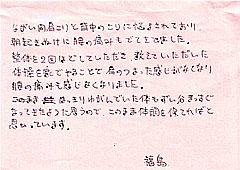 ながい間肩こりと背中のこりに悩まされており
朝起きぬけに腰の痛みもでてきました。
整体を2回ほどしていただき、教えていただいた
体操を家でやることで肩のつまった感じがなくなり
腰の痛みも感じなくなりました。
このまま めっきりゆがんでいた体もずい分まっすぐ
なってきたように思うので、このまま体調を保てればと
思っています。
福島